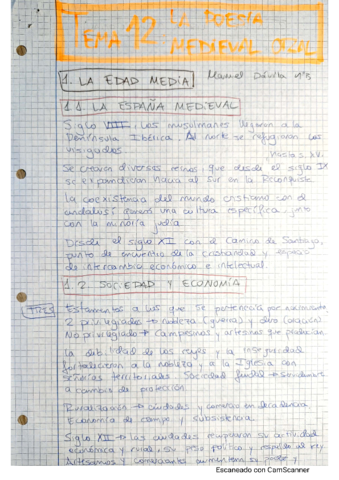 TEMA 12 LA POESÍA
MEDIEVAL ORAL
1. LA EDAD MEDIA
Manuel Dávila 1ºB
1.1. LA ESPAÑA MEDIEVAL
Siglo VIII, los musulmanes llegaron a la
Península Ibérica. Al norte se refugiaron los
visigodos.
Hasta s. XV.
Se crearon diversos reinos, que desde el siglo IX
se expandirían hacia al sur en la Reconquista.
La coexistencia del mundo cristiano con el
andalusí una cultura específica, junto
con la minoría judía.
Desde el siglo XI con el Camino de Santiago,
punto de encuentro de la cristiandad y espacio
de intercambio económico e intelectual.
1.2. SOCIEDAD Y ECONOMÍA
TRES
Estamentos a los que se pertenecía por nacimiento
2 privilegiados → nobleza (guerra) y clero (oración)
No privilegiado → Campesinos y artesanos que
La debilidad de los reyes y la inseguridad
fortalecieron a la nobleza y a la Iglesia con
señoríos territoriales. Sociedad feudal →
a cambio de protección.
Ruralización → ciudades y comercio en decadencia.
Economía de campo y subsistencia.
Siglo XII → las ciudades recuperan su actividad
económica y rural, su peso político y respaldo al rey.
Artesanos y comerciantes aumentan su poder y
Escaneado con CamScanner